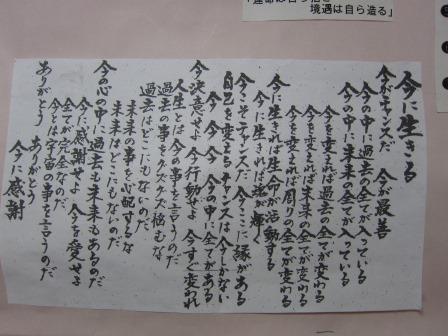 境遇は自ら造る」
今に生きる
今がチャンスだ　今が最善
今の中に過去の全てが入っている
今の中に未来の全てが入っている
今を変えれば過去の全てが変わる
今を変えれば未来の全てが変わる
今を変えれば周りの全てが変わる
今に生きれば生命が活動する
今に生きれば魂が輝く
今こそチャンスだ　今ここに縁がある
自己を変えるチャンスは今しかない
今　今　今　今の中に全てがある
今決意せよ　今行動せよ　今すぐ変われ
人生とは今の事を言うのだ
過去の事をクズクズ悩むな
過去はどこにもないのだ
未来の事を心配するな
未来はどこにもないのだ
今の心の中に過去も未来もあるのだ
今に感謝せよ　今を愛せよ
全てが完全なのだ
今とは宇宙の事を言うのだ
ありがとう　ありがとう
今に感謝